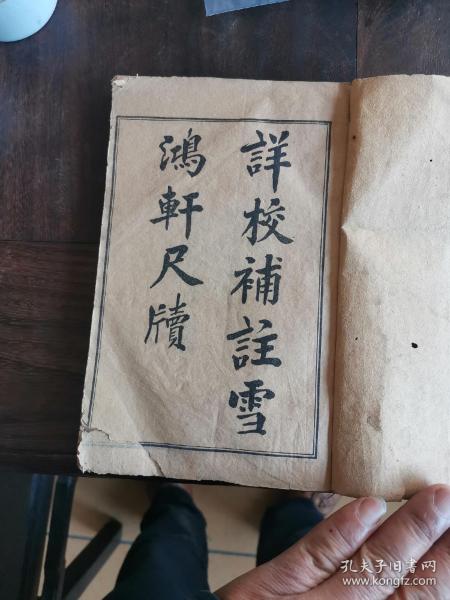 詳校補註雪
鴻軒尺牘
孔夫子旧书网
www.kongfz.com